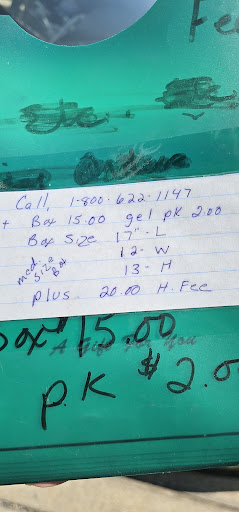 Fe
Call, 1-800-622-1147
+ Box 15.00 gel pk 2.00
Box Size 17"-L
12-W
med. size Box
13-H
plus 20.00 H. Fee
Box # 15.00
A Gift For You
p.K $ 2.0